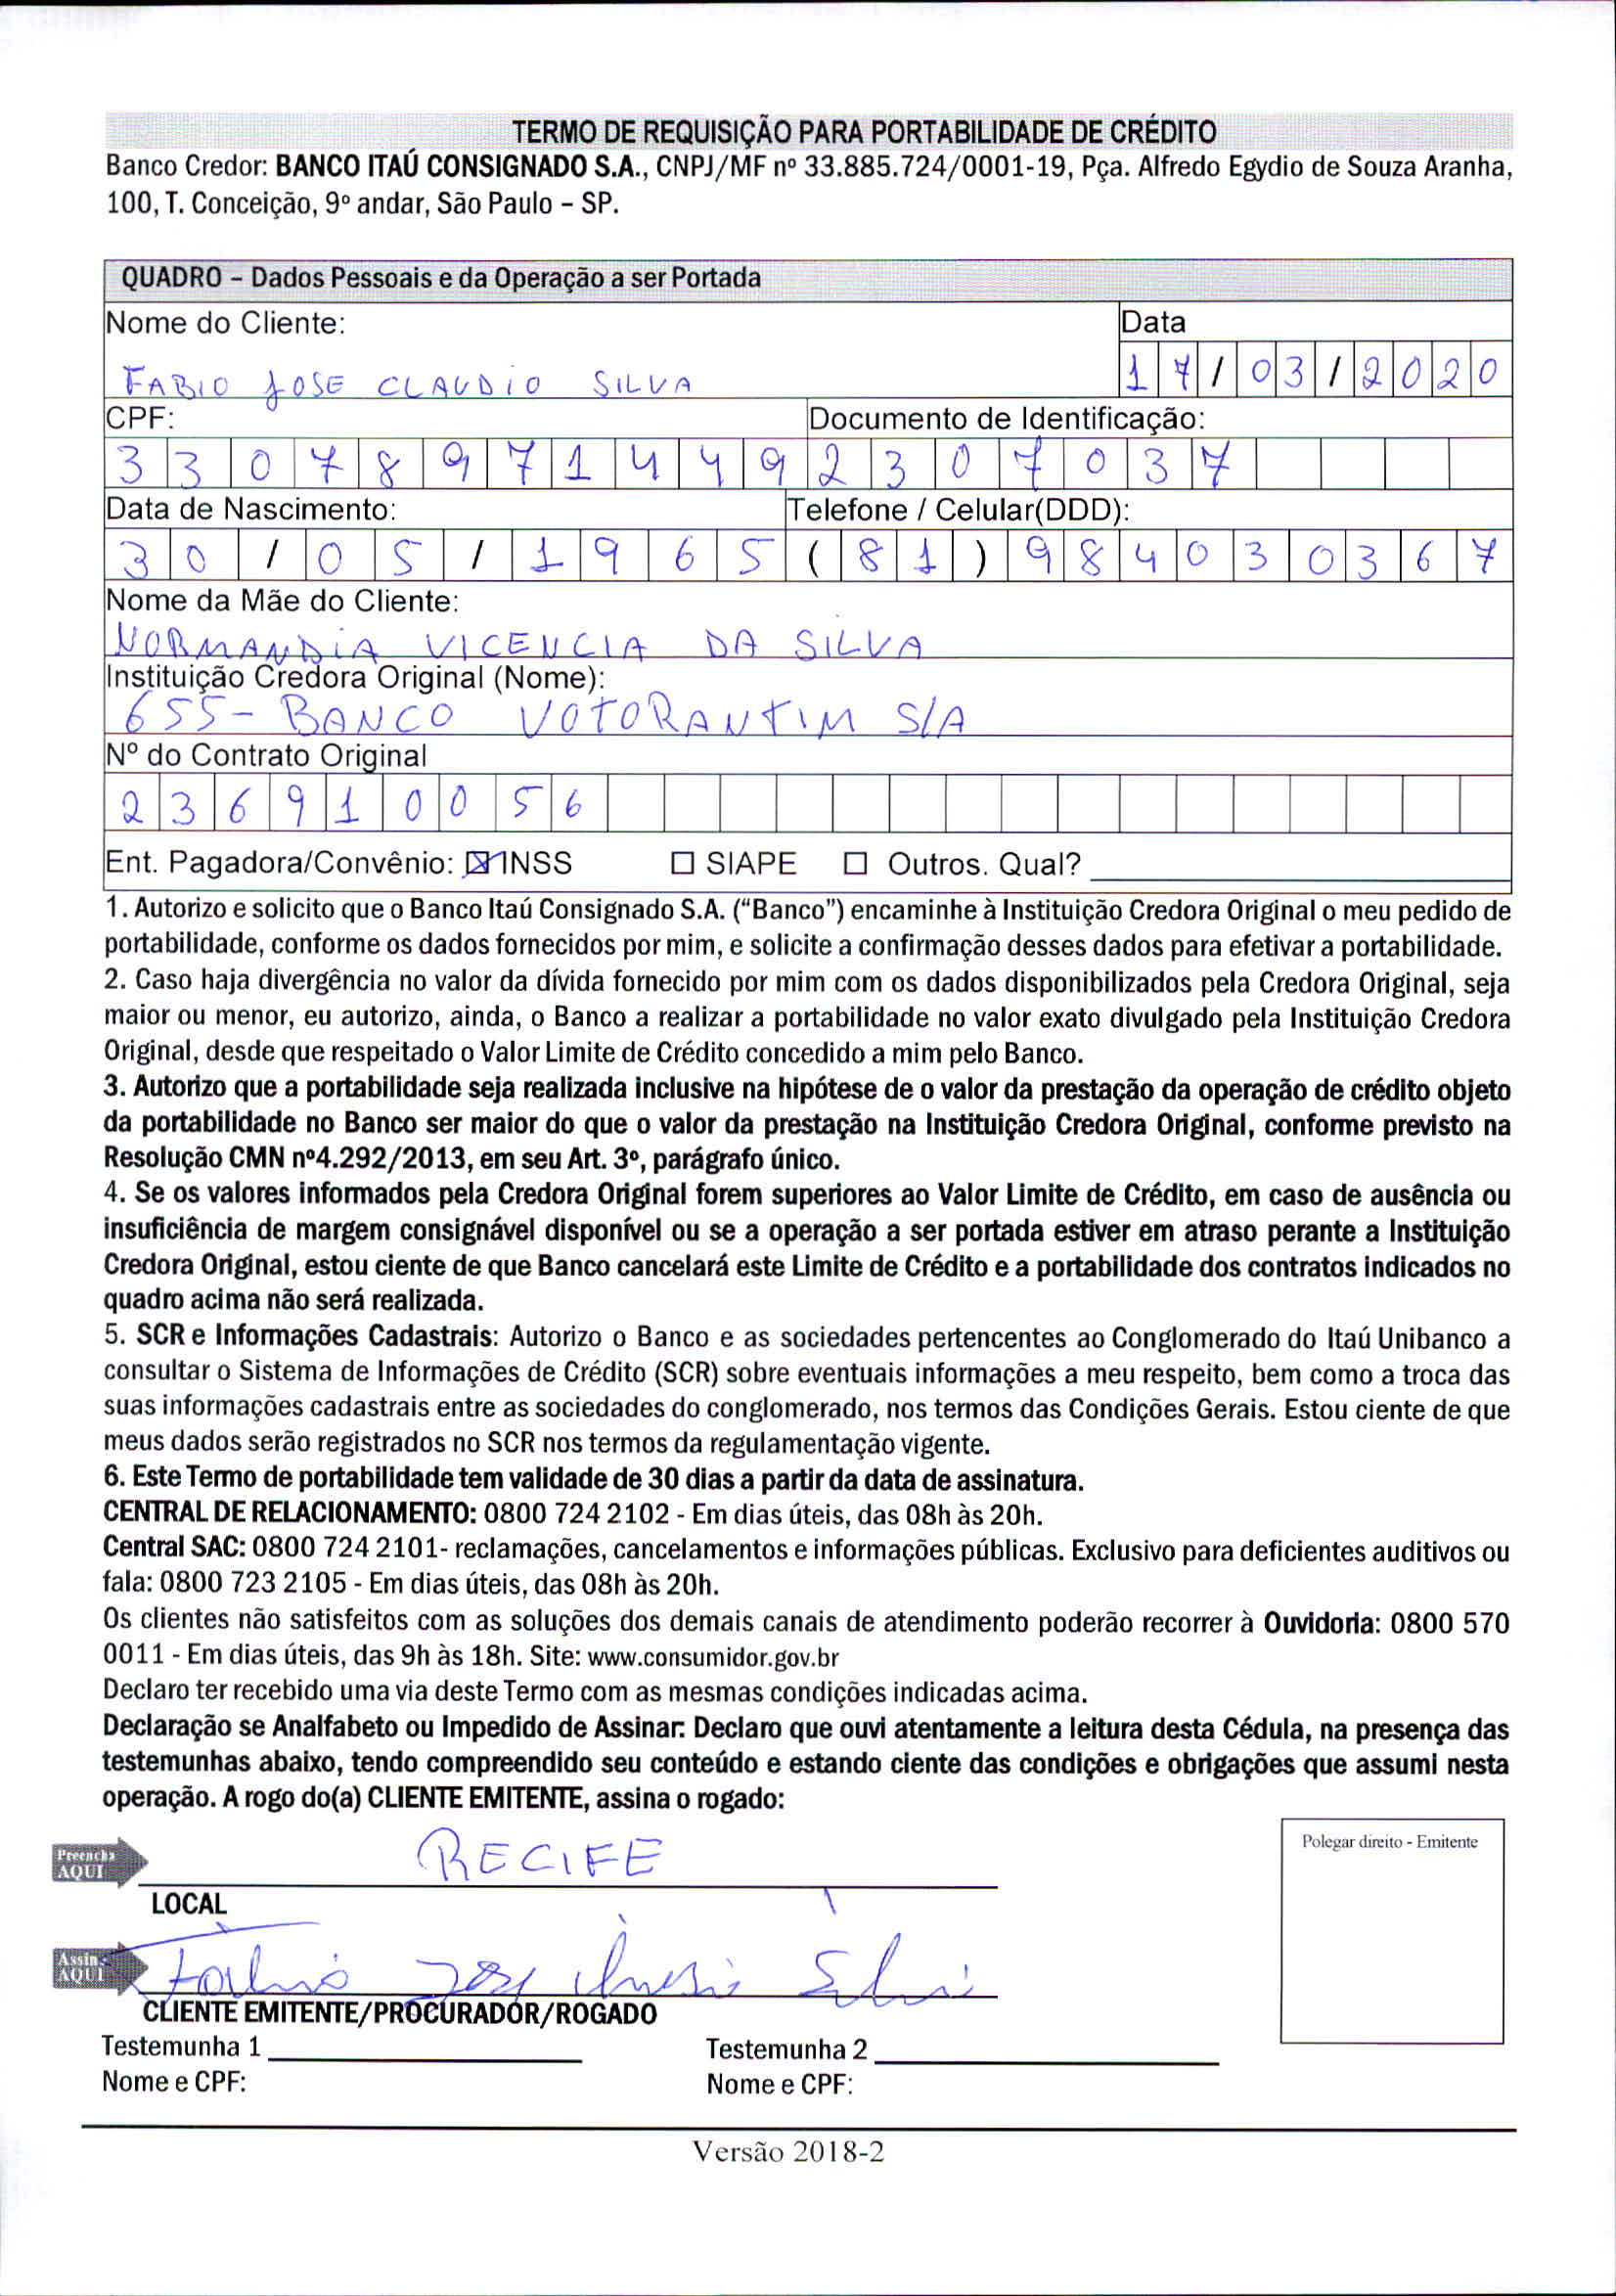 TERMO DE REQUISIÇÃO PARA PORTABILIDADE DE CRÉDITO
Banco Credor: BANCO ITAÚ CONSIGNADO S.A., CNPJ/MF nº 33.885.724/0001-19, Pça. Alfredo Egydio de Souza Aranha,
100, T. Conceição, 9º andar, São Paulo – SP.
QUADRO – Dados Pessoais e da Operação a ser Portada
Nome do Cliente: Data
FABIO JOSE CLAUDIO SILVA 17/03/2020
CPF: Documento de Identificação:
33078971449 2307037
Data de Nascimento: Telefone / Celular(DDD):
30/05/1965 (81) 984030367
Nome da Mãe do Cliente:
NORMANDIA VICENCIA DA SILVA
Instituição Credora Original (Nome):
655- BANCO VOTORANTIM S/A
Nº do Contrato Original
236910056
Ent. Pagadora/Convênio: ☒ INSS ☐ SIAPE ☐ Outros. Qual?
1. Autorizo e solicito que o Banco Itaú Consignado S.A. (“Banco”) encaminhe à Instituição Credora Original o meu pedido de
portabilidade, conforme os dados fornecidos por mim, e solicite a confirmação desses dados para efetivar a portabilidade.
2. Caso haja divergência no valor da dívida fornecido por mim com os dados disponibilizados pela Credora Original, seja
maior ou menor, eu autorizo, ainda, o Banco a realizar a portabilidade no valor exato divulgado pela Instituição Credora
Original, desde que respeitado o Valor Limite de Crédito concedido a mim pelo Banco.
3. Autorizo que a portabilidade seja realizada inclusive na hipótese de o valor da prestação da operação de crédito objeto
da portabilidade no Banco ser maior do que o valor da prestação na Instituição Credora Original, conforme previsto na
Resolução CMN nº4.292/2013, em seu Art. 3º, parágrafo único.
4. Se os valores informados pela Credora Original forem superiores ao Valor Limite de Crédito, em caso de ausência ou
insuficiência de margem consignável disponível ou se a operação a ser portada estiver em atraso perante a Instituição
Credora Original, estou ciente de que Banco cancelará este Limite de Crédito e a portabilidade dos contratos indicados no
quadro acima não será realizada.
5. SCR e Informações Cadastrais: Autorizo o Banco e as sociedades pertencentes ao Conglomerado do Itaú Unibanco a
consultar o Sistema de Informações de Crédito (SCR) sobre eventuais informações a meu respeito, bem como a troca das
suas informações cadastrais entre as sociedades do conglomerado, nos termos das Condições Gerais. Estou ciente de que
meus dados serão registrados no SCR nos termos da regulamentação vigente.
6. Este Termo de portabilidade tem validade de 30 dias a partir da data de assinatura.
CENTRAL DE RELACIONAMENTO: 0800 724 2102 - Em dias úteis, das 08h às 20h.
Central SAC: 0800 724 2101- reclamações, cancelamentos e informações públicas. Exclusivo para deficientes auditivos ou
fala: 0800 723 2105 - Em dias úteis, das 08h às 20h.
Os clientes não satisfeitos com as soluções dos demais canais de atendimento poderão recorrer à Ouvidoria: 0800 570
0011 - Em dias úteis, das 9h às 18h. Site: www.consumidor.gov.br
Declaro ter recebido uma via deste Termo com as mesmas condições indicadas acima.
Declaração se Analfabeto ou Impedido de Assinar: Declaro que ouvi atentamente a leitura desta Cédula, na presença das
testemunhas abaixo, tendo compreendido seu conteúdo e estando ciente das condições e obrigações que assumi nesta
operação. A rogo do(a) CLIENTE EMITENTE, assina o rogado:
Polegar direito - Emitente
Preencha
AQUI
RECIFE
LOCAL
Assine
AQUI
CLIENTE EMITENTE/PROCURADOR/ROGADO
Testemunha 1 Testemunha 2
Nome e CPF: Nome e CPF:
Versão 2018-2